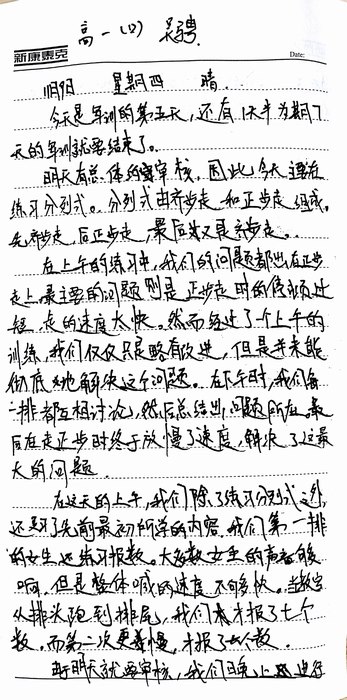 高一(四) 吴骋
新康泰克
Date:
11月9日 星期四 晴
今天是军训的第五天,还有1天半为期7
天的军训就要结束了。
明天有总体的审核,因此,今天主要在
练习分列式。分列式由齐步走和正步走组成。
先齐步走,后正步走,最后又是齐步走。
在上午的练习中,我们的问题都出在正步
走上,最主要的问题则是正步走时的停顿过
短,走的速度太快。然而经过了一个上午的
训练,我们仅仅只是略有改进,但是并未能
彻底地解决这个问题。在下午时,我们每
一排都互相讨论,然后总结出问题所在,最
后在走正步时终于放慢了速度,解决了这最
大的问题。
在这天的上午,我们除了练习分列式之外,
还复习了先前最初所学的内容。我们第一排
的女生还练习报数。大多数女生的声音够
响,但是整体喊的速度不够快。当教官
从排头跑到排尾,我们才报了七个
数。而第二次更慢,才报了六个数。
由于明天就要审核,我们晚上还进行